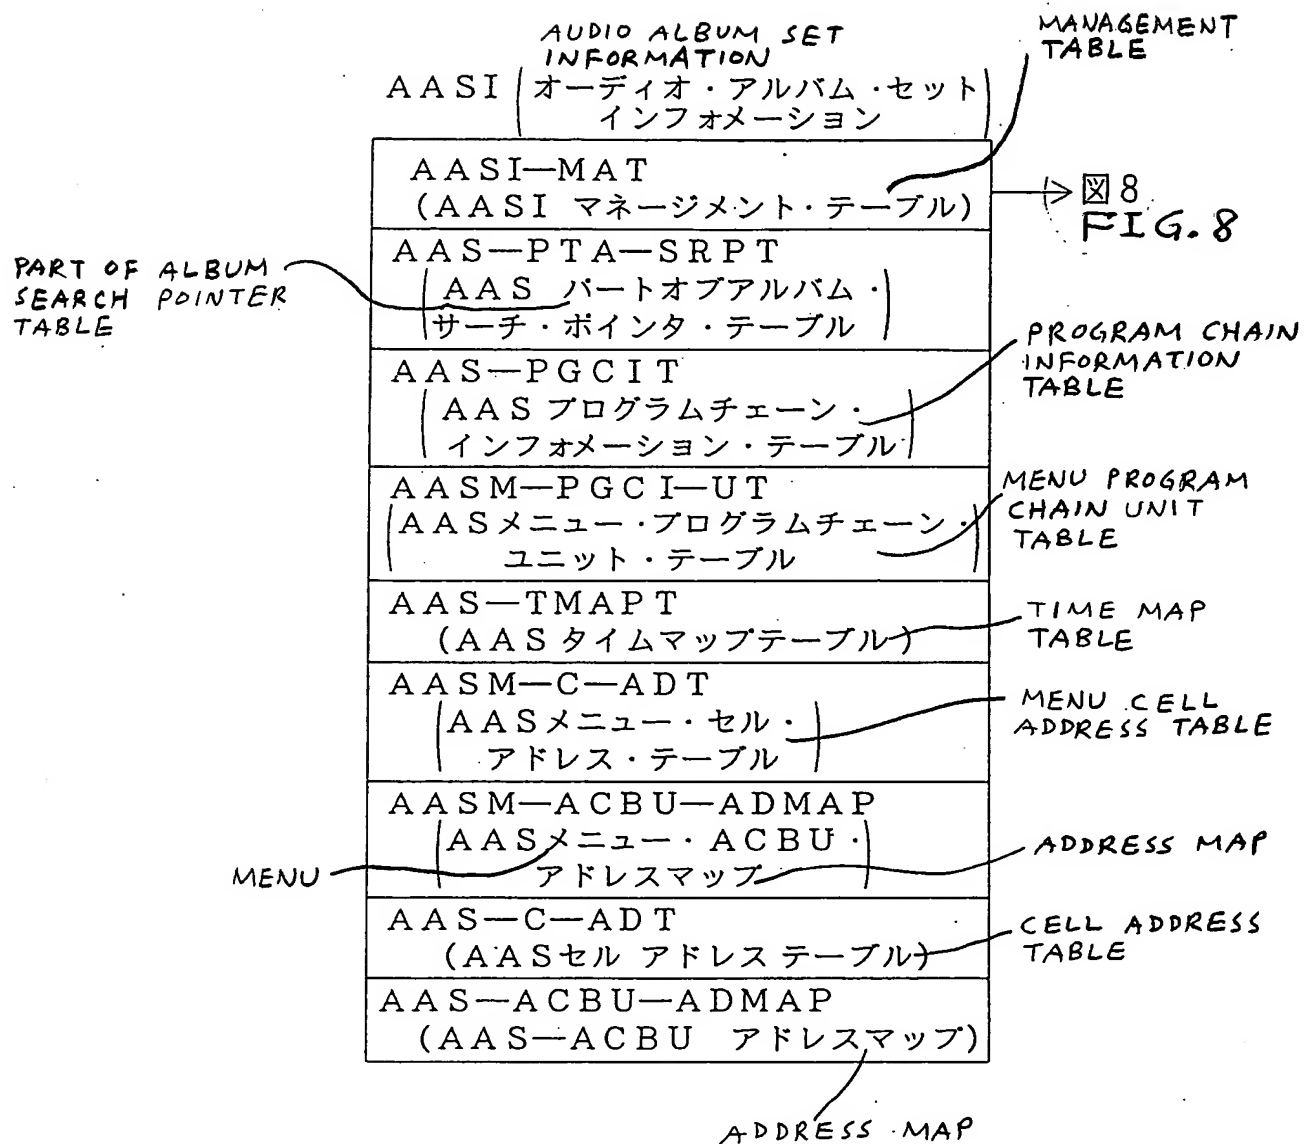 AUDIO ALBUM SET
INFORMATION
MANAGEMENT
TABLE
AASI (オーディオ・アルバム・セット
インフォメーション)
AASI—MAT
(AASI マネージメント・テーブル)
図8
FIG. 8
AAS—PTA—SRPT
(AAS パートオブアルバム・
サーチ・ポインタ・テーブル)
PART OF ALBUM
SEARCH POINTER
TABLE
AAS—PGCIT
(AASプログラムチェーン・
インフォメーション・テーブル)
PROGRAM CHAIN
INFORMATION
TABLE
AASM—PGCI—UT
(AASメニュー・プログラムチェーン・
ユニット・テーブル)
MENU PROGRAM
CHAIN UNIT
TABLE
AAS—TMAPT
(AASタイムマップテーブル)
TIME MAP
TABLE
AASM—C—ADT
(AASメニュー・セル・
アドレス・テーブル)
MENU CELL
ADDRESS TABLE
AASM—ACBU—ADMAP
(AASメニュー・ACBU・
アドレスマップ)
MENU
ADDRESS MAP
AAS—C—ADT
(AASセル アドレス テーブル)
CELL ADDRESS
TABLE
AAS—ACBU—ADMAP
(AAS—ACBU アドレスマップ)
ADDRESS MAP